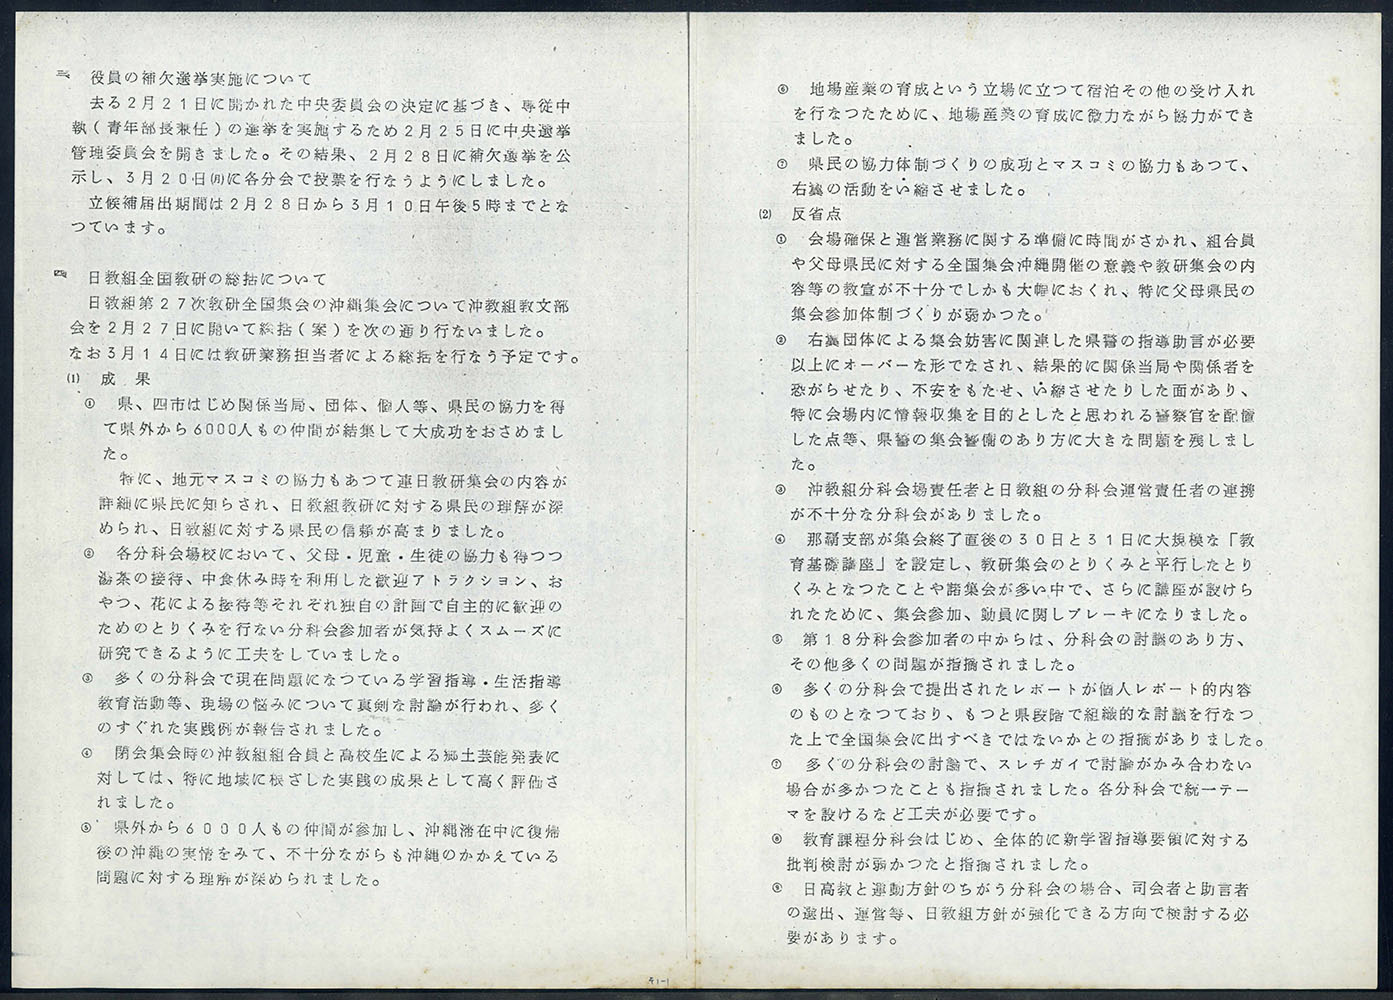 三、 役員の補欠選挙実施について
去る2月21日に開かれた中央委員会の決定に基づき、専従中
執(青年部長兼任)の選挙を実施するため2月25日に中央選挙
管理委員会を開きました。その結果、2月28日に補欠選挙を公
示し、3月20日㈪に各分会で投票を行なうようにしました。
立候補届出期間は2月28日から3月10日午後5時までとな
つています。
四、 日教組全国教研の総括について
日教組第27次教研全国集会の沖縄集会について沖教組教文部
会を2月27日に開いて総括(案)を次の通り行ないました。
なお3月14日には教研業務担当者による総括を行なう予定です。
⑴ 成 果
① 県、四市はじめ関係当局、団体、個人等、県民の協力を得
て県外から6000人もの仲間が結集して大成功をおさめまし
た。
特に、地元マスコミの協力もあつて連日教研集会の内容が
詳細に県民に知らされ、日教組教研に対する県民の理解が深
められ、日教組に対する県民の信頼が高まりました。
② 各分科会場校において、父母・児童・生徒の協力も得つつ
湯茶の接待、中食休み時を利用した歓迎アトラクション、お
やつ、花による接待等それぞれ独自の計画で自主的に歓迎の
ためのとりくみを行ない分科会参加者が気持よくスムーズに
研究できるように工夫をしていました。
③ 多くの分科会で現在問題になつている学習指導・生活指導
教育活動等、現場の悩みについて真剣な討論が行われ、多く
のすぐれた実践例が報告されました。
④ 閉会集会時の沖教組組合員と高校生による郷土芸能発表に
対しては、特に地域に根ざした実践の成果として高く評価さ
れました。
⑤ 県外から6000人もの仲間が参加し、沖縄滞在中に復帰
後の沖縄の実情をみて、不十分ながらも沖縄のかかえている
問題に対する理解が深められました。
⑥ 地場産業の育成という立場に立つて宿泊その他の受け入れ
を行なつたために、地場産業の育成に微力ながら協力ができ
ました。
⑦ 県民の協力体制づくりの成功とマスコミの協力もあつて、
右翼の活動をい縮させました。
⑵ 反省点
① 会場確保と運営業務に関する準備に時間がさかれ、組合員
や父母県民に対する全国集会沖縄開催の意義や教研集会の内
容等の教宣が不十分でしかも大幅におくれ、特に父母県民の
集会参加体制づくりが弱かつた。
② 右翼団体による集会妨害に関連した県警の指導助言が必要
以上にオーバーな形でなされ、結果的に関係当局や関係者を
恐がらせたり、不安をもたせ、い縮させたりした面があり、
特に会場内に情報収集を目的としたと思われる警察官を配置
した点等、県警の集会警備のあり方に大きな問題を残しまし
た。
③ 沖教組分科会場責任者と日教組の分科会運営責任者の連携
が不十分な分科会がありました。
④ 那覇支部が集会終了直後の30日と31日に大規模な「教
育基礎講座」を設定し、教研集会のとりくみと平行したとり
くみとなつたことや諸集会が多い中で、さらに講座が設けら
れたために、集会参加、動員に関しブレーキになりました。
⑤ 第18分科会参加者の中からは、分科会の討議のあり方、
その他多くの問題が指摘されました。
⑥ 多くの分科会で提出されたレポートが個人レポート的内容
のものとなつており、もつと県段階で組織的な討議を行なつ
た上で全国集会に出すべきではないかとの指摘がありました。
⑦ 多くの分科会の討論で、スレチガイで討論がかみ合わない
場合が多かつたことも指摘されました。各分科会で統一テー
マを設けるなど工夫が必要です。
⑧ 教育課程分科会はじめ、全体的に新学習指導要領に対する
批判検討が弱かつたと指摘されました。
⑨ 日高教と運動方針のちがう分科会の場合、司会者と助言者
の選出、運営等、日教組方針が強化できる方向で検討する必
要があります。
41-1